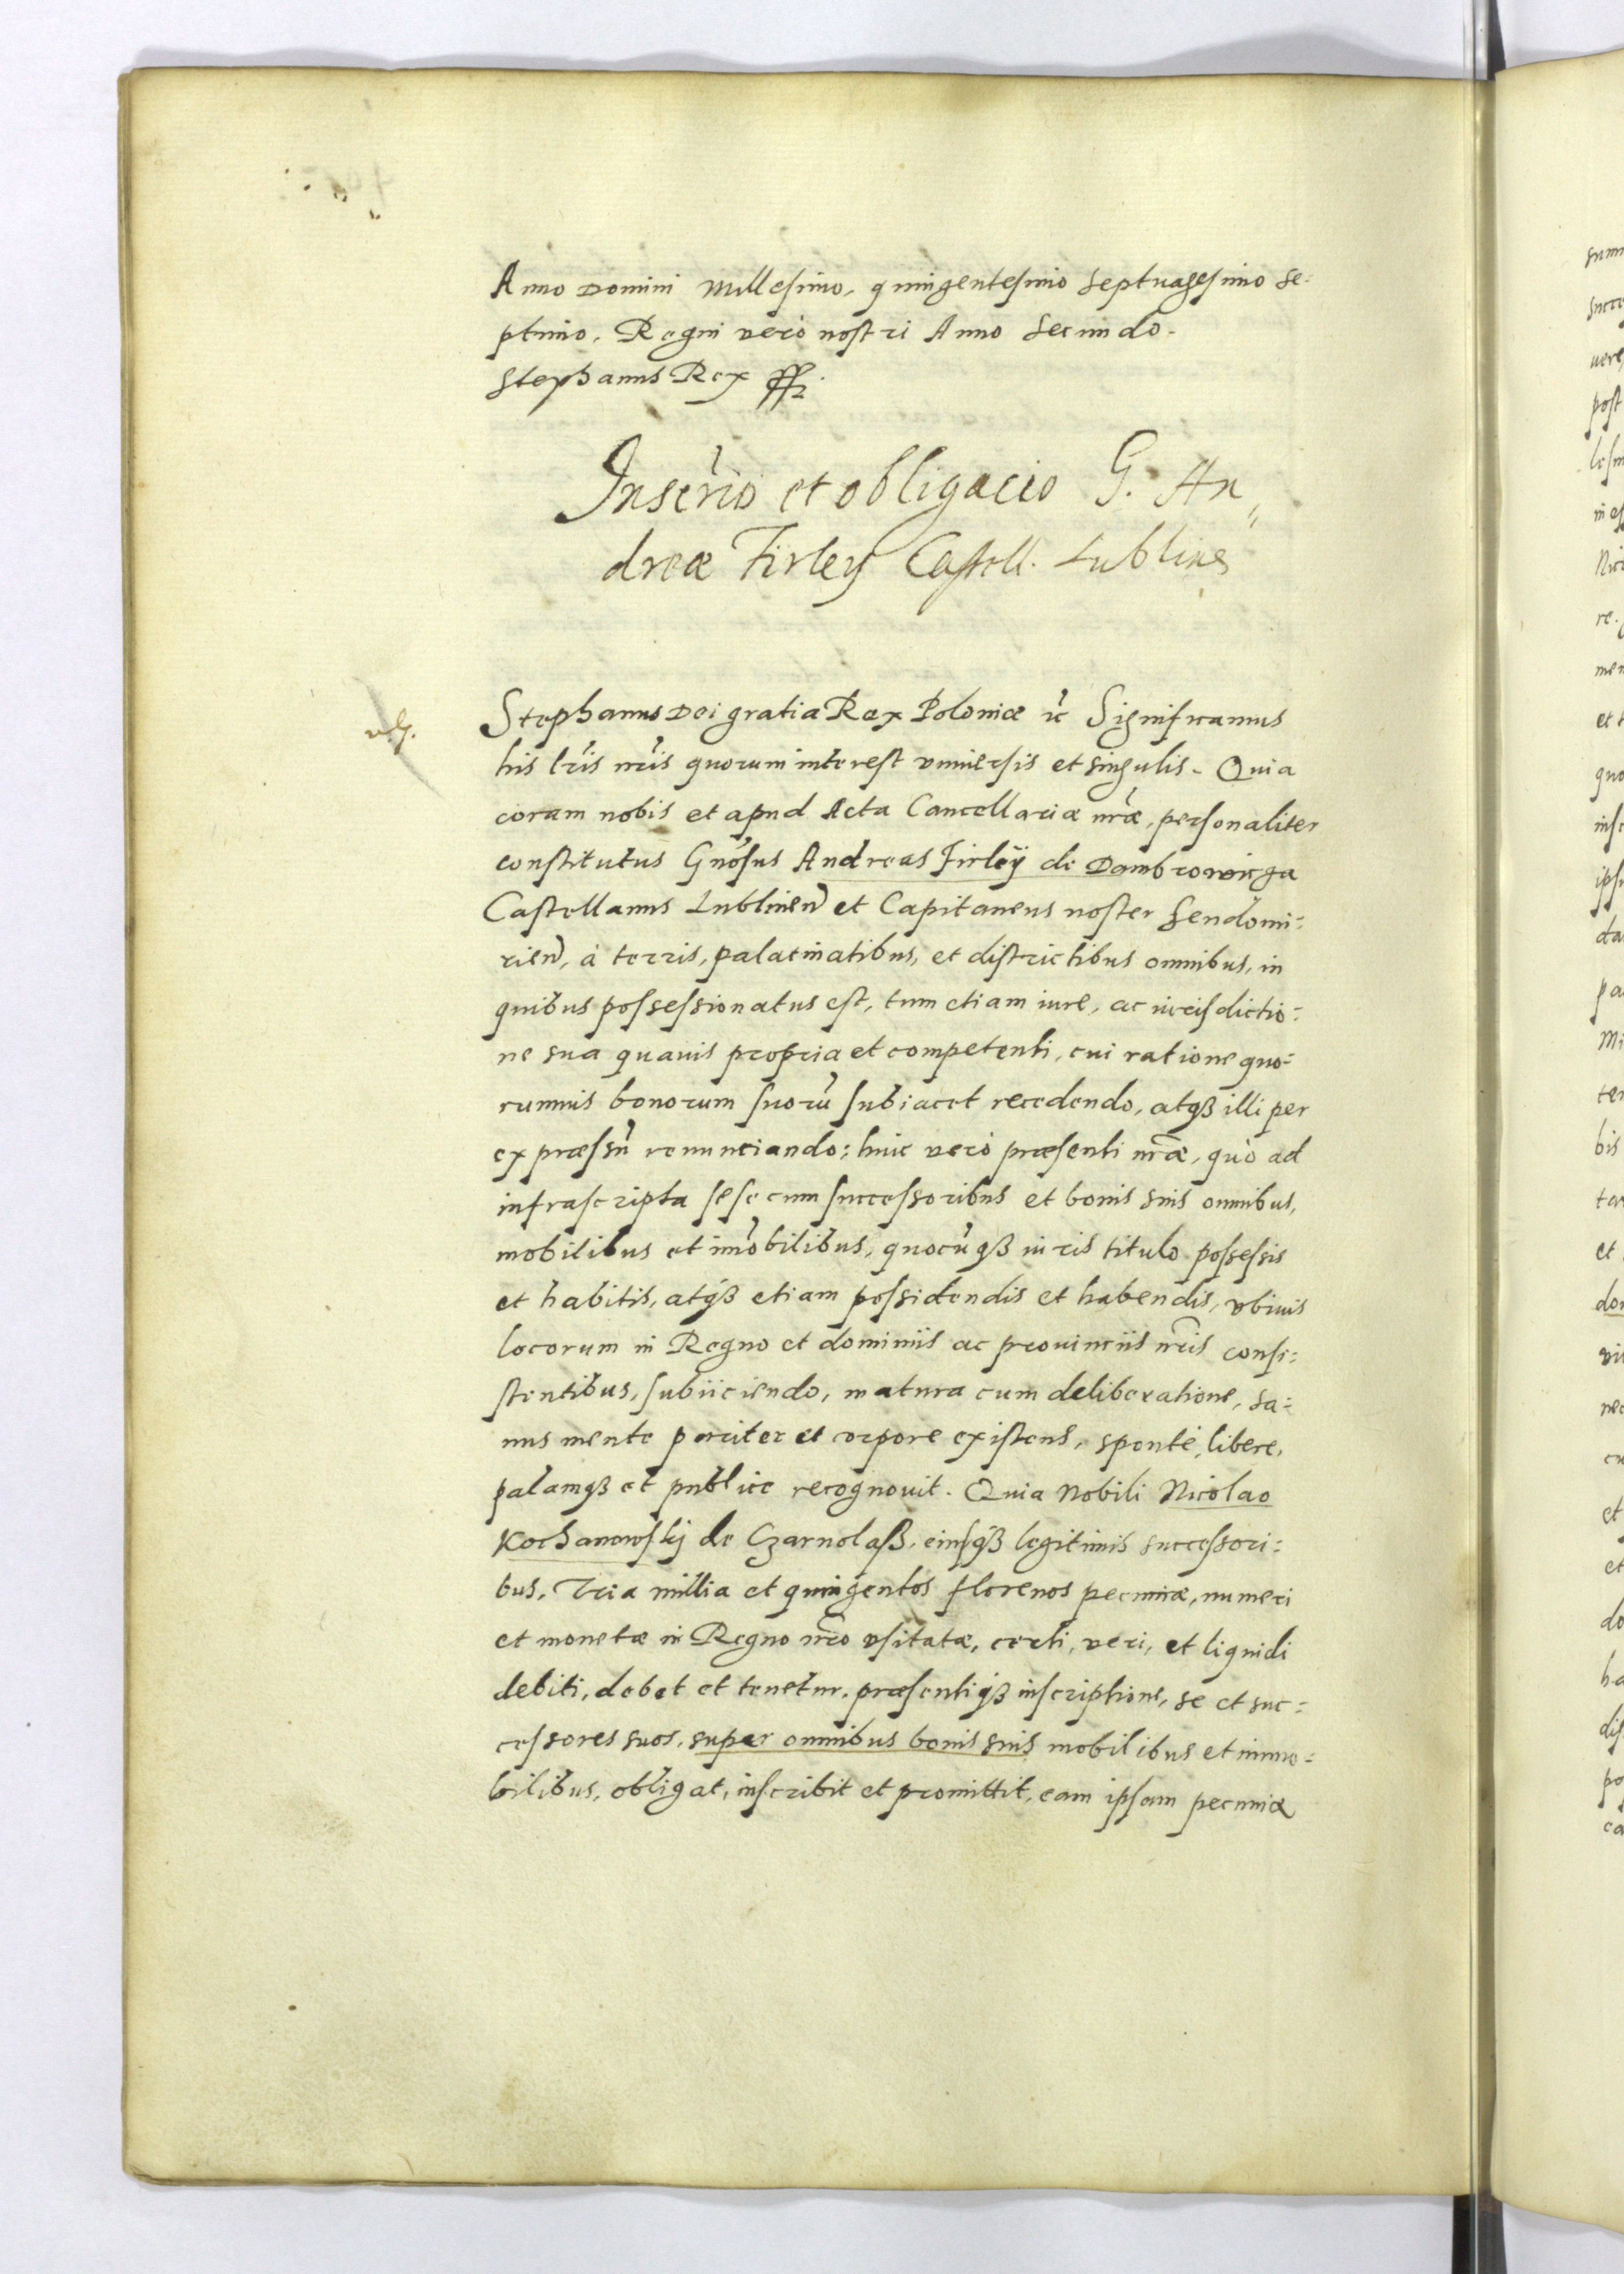 Anno Domini Millesimo, quingentesimo septuagesimo se-
ptimo, Regni verò nostri Anno Secundo.
Stephanus Rex
Inscrio et obligacio G. An„
dreæ Firley Castell. Lublines
Stephanus Dei gratia Rex Poloniæ Significamus
his lris nris quorum interest vniuersis et singulis. Quia
coram nobis et apud Acta Cancellariæ nræ, personaliter
constitutus Gnosus Andreas Firleÿ de Dambrowicza
Castellanus Lublinen et Capitaneus noster Sendomi:
rien, à terris, palatinatibus, et districtibus omnibus, in
quibus possessionatus est, tum etiam iure, ac iurisdictio:
ne sua quauis propria et competenti, cui ratione quo:
rumuis bonorum suorū subiacet recedendo, atqß illi per
expræssū renunciando: huic verò præsenti nræ, quò ad
infrascripta sese cum successoribus et bonis suis omnibus,
mobilibus et imobilibus, quocūqß iuris titulo possessis
et habitis, atqß etiam possidendis et habendis, vbiuis
locorum in Regno et dominiis ac prouinciis nris consi:
stentibus, subiiciendo, matura cum deliberatione, sa:
nus mente pariter et corpore existens, sponte, libere,
palamqß et publice recognouit. Quia Nobili Nicolao
Kochanowskij de Czarnolaß, eiusqß legitimis successori:
bus, Tria millia et quingentos florenos pecuniæ, numeri
et monetæ in Regno nro vsitatæ, certi, veri, et liquidi
debiti, debet et tenetur, præsentiqß inscriptione, se et suc:
cessores suos, super omnibus bonis suis mobilibus et immo:
bilibus, obligat, inscribit et promittit, eam ipsam pecuniæ